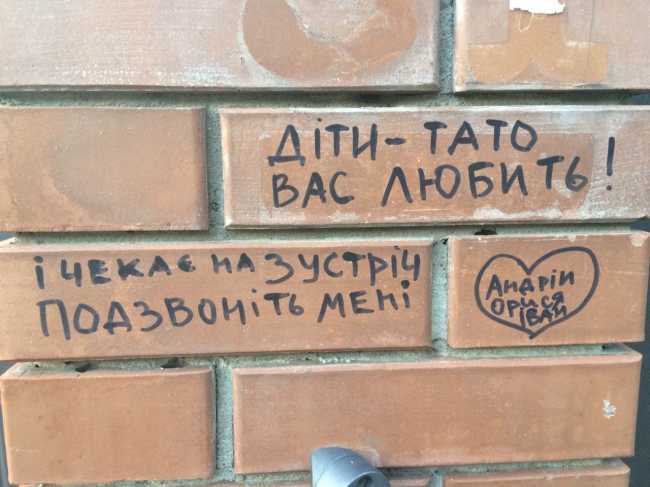 ДІТИ - ТАТО
ВАС ЛЮБИТЬ!
І ЧЕКАЄ НА ЗУСТРІЧ
ПОДЗВОНІТЬ МЕНІ
АНДРІЙ
ОРИСЯ
ІВАН